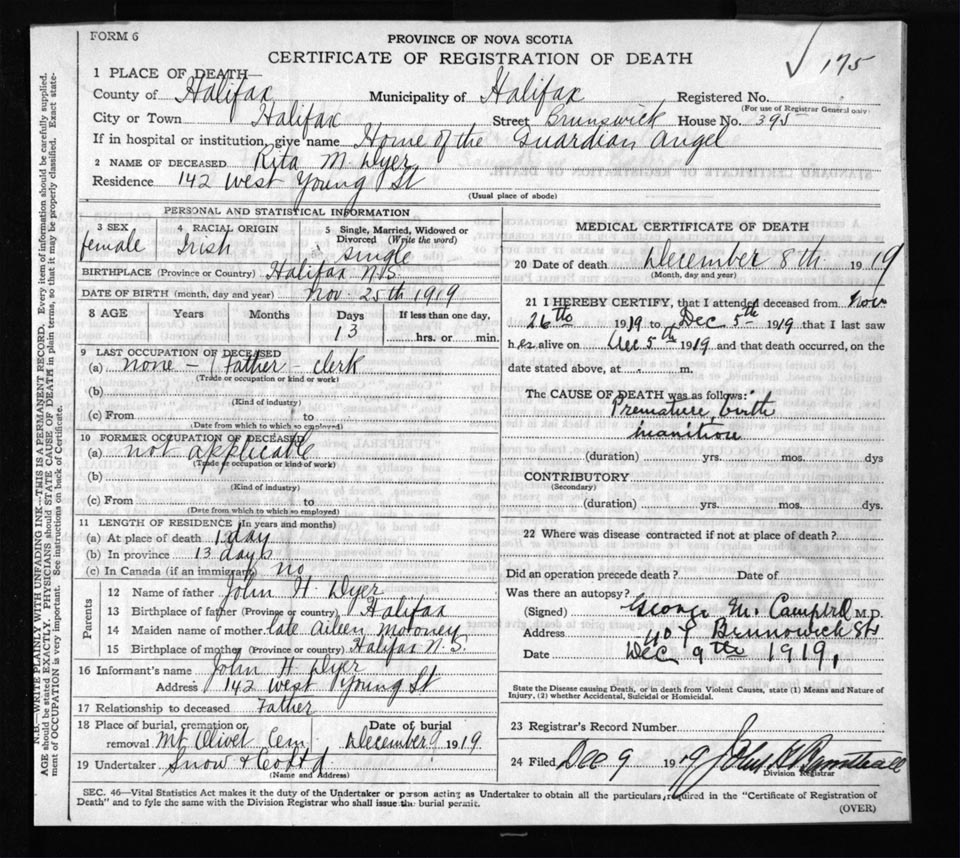 FORM 6
PROVINCE OF NOVA SCOTIA
CERTIFICATE OF REGISTRATION OF DEATH
175
1 PLACE OF DEATH—
County of Halifax Municipality of Halifax Registered No.
(For use of Registrar General only)
City or Town Halifax Street Brunswick House No. 395
If in hospital or institution, give name Home of the Guardian Angel
2 NAME OF DECEASED Rita M. Dyer
Residence 142 West Young St
(Usual place of abode)
PERSONAL AND STATISTICAL INFORMATION
3 SEX 4 RACIAL ORIGIN 5 Single, Married, Widowed or Divorced (Write the word)
female Irish single
BIRTHPLACE (Province or Country) Halifax N.S.
DATE OF BIRTH (month, day and year) Nov. 25th 1919
8 AGE Years Months Days If less than one day,
13 hrs. or min.
9 LAST OCCUPATION OF DECEASED
(a) none – (Father – clerk
(Trade or occupation or kind or work)
(b)
(Kind of industry)
(c) From to
(Date from which to which so employed)
10 FORMER OCCUPATION OF DECEASED
(a) not applicable
(Trade or occupation or kind or work)
(b)
(Kind of industry)
(c) From to
(Date from which to which so employed)
11 LENGTH OF RESIDENCE (In years and months)
(a) At place of death 1 day
(b) In province 13 days
(c) In Canada (if an immigrant) no
Parents
12 Name of father John H. Dyer
13 Birthplace of father (Province or country) Halifax
14 Maiden name of mother late Aileen Moroney
15 Birthplace of mother (Province or country) Halifax N.S.
16 Informant's name John H. Dyer
Address 142 West Young St
17 Relationship to deceased Father
18 Place of burial, cremation or removal Mt Olivet Cem Date of burial December 9 1919
19 Undertaker Snow & Co Ltd
(Name and Address)
MEDICAL CERTIFICATE OF DEATH
20 Date of death December 8th 1919
(Month, day and year)
21 I HEREBY CERTIFY, that I attended deceased from Nov
26th 1919 to Dec 5th 1919 that I last saw
her alive on Dec 5th 1919 and that death occurred, on the
date stated above, at m.
The CAUSE OF DEATH was as follows:
Premature birth
inanition
(duration) yrs. mos. dys
CONTRIBUTORY
(Secondary)
(duration) yrs. mos. dys.
22 Where was disease contracted if not at place of death?
Did an operation precede death? Date of
Was there an autopsy?
(Signed) George M. Campbell M.D.
Address Brunswick St
Date Dec 9th 1919,
State the Disease causing Death, or in death from Violent Causes, state (1) Means and Nature of
Injury, (2) whether Accidental, Suicidal or Homicidal.
23 Registrar's Record Number
24 Filed Dec 9 1919 John
Division Registrar
SEC. 46—Vital Statistics Act makes it the duty of the Undertaker or person acting as Undertaker to obtain all the particulars required in the "Certificate of Registration of
Death" and to fyle the same with the Division Registrar who shall issue the burial permit.
(OVER)
N.B.—WRITE PLAINLY WITH UNFADING INK—THIS IS A PERMANENT RECORD. Every item of information should be carefully supplied.
AGE should be stated EXACTLY. PHYSICIANS should STATE CAUSE OF DEATH in plain terms, so that it may be properly classified. Exact state-
ment of OCCUPATION is very important. See instructions on back of Certificate.